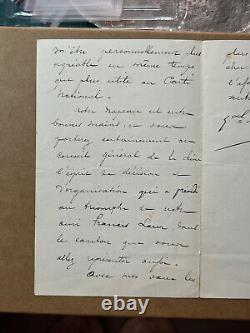 m'être personnellement plus
agréable en même temps
que plus utile au Comité
National.
Notre drapeau est entre
bonnes mains et vous
porterez certainement au
Conseil général de la
l'esprit de décision et
d'organisation qui a
au triomphe de notre
ami Francis Laur, dans
le canton que vous
allez représenter
Avec mes vœux les
plus
cher